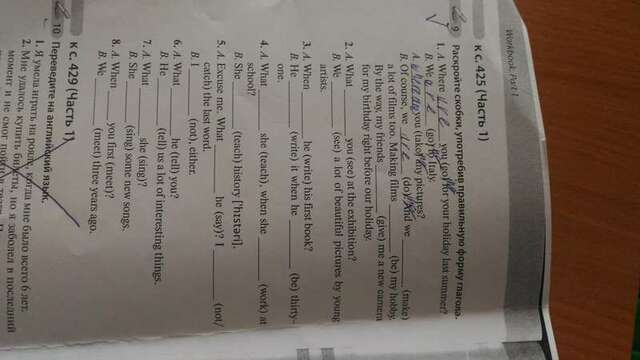 Workbook. Part 1
К с. 425 (Часть 1)
9 Раскройте скобки, употребив правильную форму глагола.
1. A. Where ____ you (go) for your holiday last summer?
B. We ____ (go) to Italy.
A. ____ you (take) any pictures?
B. Of course, we ____ (do). And we ____ (make)
a lot of films too. Making films ____ (be) my hobby.
By the way, my friends ____ (give) me a new camera
for my birthday right before our holiday.
2. A. What ____ you (see) at the exhibition?
B. We ____ (see) a lot of beautiful pictures by young
artists.
3. A. When ____ he (write) his first book?
B. He ____ (write) it when he ____ (be) thirty-
one.
4. A. What ____ she (teach), when she ____ (work) at
school?
B. She ____ (teach) history ['hɪstəri].
5. A. Excuse me. What ____ he (say)? I ____ (not/
catch) the last word.
B. I ____ (not), either.
6. A. What ____ he (tell) you?
B. He ____ (tell) us a lot of interesting things.
7. A. What ____ she (sing)?
B. She ____ (sing) some new songs.
8. A. When ____ you first (meet)?
B. We ____ (meet) three years ago.
К с. 429 (Часть 1)
10 Переведите на английский язык.
1. Я умела играть на рояле, когда мне было всего 6 лет.
2. Мне удалось купить билеты, но я заболел в последний
момент и не смог пойти